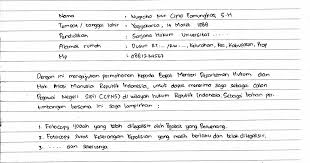 Nama : Nugroho Nur Cipto Pamungkas, S.H
Tempat / tanggal lahir : Yogyakarta, 14 Maret 1988
Pendidikan : Sarjana Hukum Universitas .....
Alamat rumah : Dusun RT.../RW..., Kelurahan, Kec, Kabupaten, Prop
Hp : 08812
Dengan ini mengajukan permohonan kepada Bapak Menteri Departemen Hukum dan
Hak Asasi Manusia Republik Indonesia, untuk dapat menerima saya sebagai Calon
Pegawai Negeri Sipil (CPNS) di wilayah hukum Republik Indonesia. Sebagai bahan per-
timbangan bersama ini saya lampirkan :
1. Fotocopy Ijazah yang telah dilegalisir oleh Pejabat yang Berwenang.
2. Fotocopy Surat Keterangan Kepolisian yang masih berlaku dan telah dilegalisir.
3. ..... dan Seterusnya.